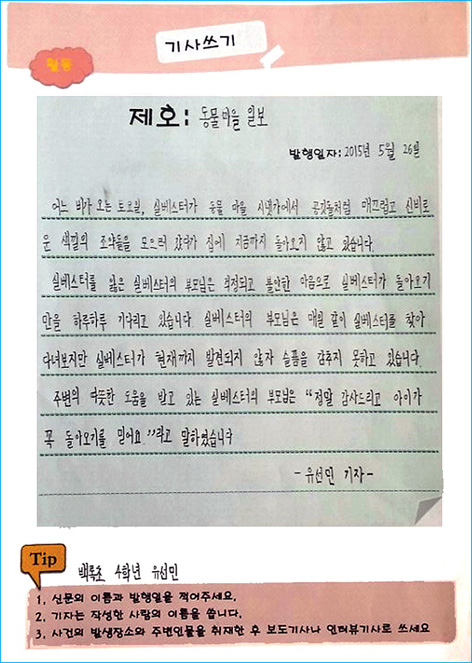 기사쓰기
활동
제호: 동물 마을 일보
발행일자: 2015년 5월 26일
어느 비가 오는 토요일, 실베스터가 동물 마을 시냇가에서 공깃돌처럼 매끄럽고 신비로
운 색깔의 조약돌을 모으러 갔다가 집에 지금까지 돌아오지 않고 있습니다.
실베스터를 잃은 실베스터의 부모님은 걱정되고 불안한 마음으로 실베스터가 돌아오기
만을 하루하루 기다리고 있습니다. 실베스터의 부모님은 매일 같이 실베스터를 찾아
다녀보지만 실베스터가 현재까지 발견되지 않자 슬픔을 감추지 못하고 있습니다.
주변의 따뜻한 도움을 받고 있는 실베스터의 부모님은 “정말 감사드리고 아이가
꼭 돌아오기를 믿어요.”라고 말하였습니다
- 유선민 기자 -
Tip
백록초 4학년 유선민
1. 신문의 이름과 발행일을 적어주세요.
2. 기자는 작성한 사람의 이름을 씁니다.
3. 사건의 발생장소와 주변인물을 취재한 후 보도기사나 인터뷰기사로 쓰세요